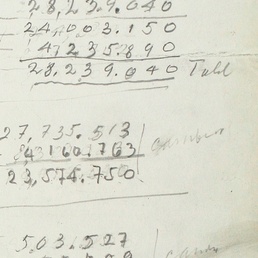 28,239.040
24.003.150
4.235.890
28.239.040 Total
27,735.513
4.160.763
23,574.750
503.527